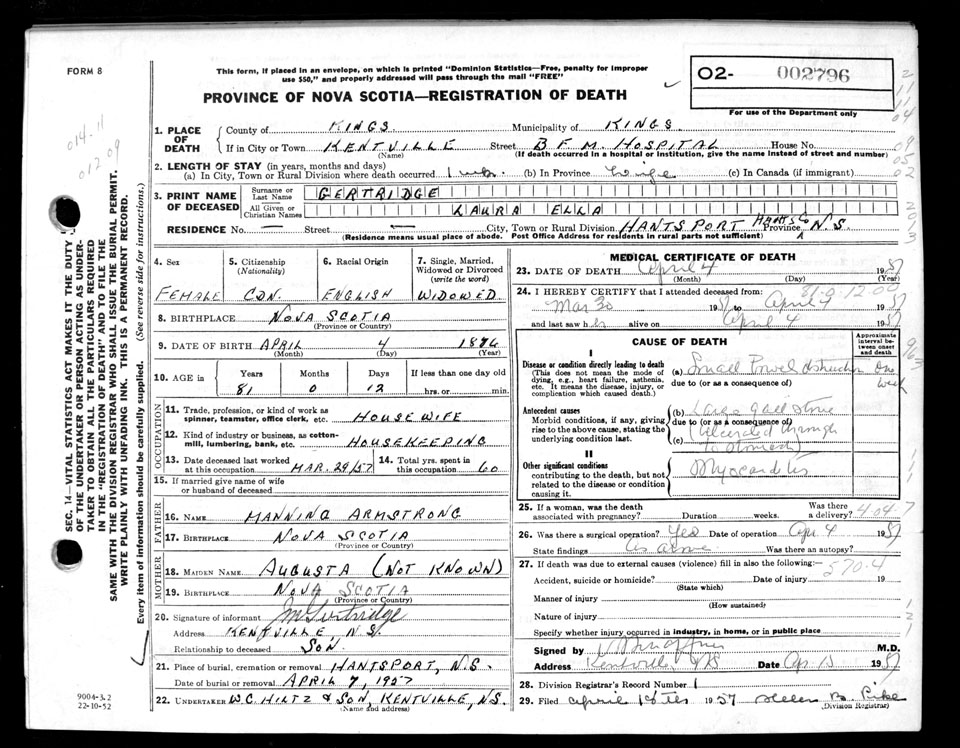 FORM 8
This form, if placed in an envelope, on which is printed "Dominion Statistics—Free, penalty for improper
use $50," and properly addressed will pass through the mail "FREE"
O2- 002796
For use of the Department only
PROVINCE OF NOVA SCOTIA—REGISTRATION OF DEATH
014.11
012.09
SEC. 14—VITAL STATISTICS ACT MAKES IT THE DUTY
OF THE UNDERTAKER OR PERSON ACTING AS UNDER-
TAKER TO OBTAIN ALL THE PARTICULARS REQUIRED
IN THE "REGISTRATION OF DEATH" AND TO FILE THE
SAME WITH THE DIVISION REGISTRAR WHO SHALL ISSUE THE BURIAL PERMIT.
WRITE PLAINLY WITH UNFADING INK. THIS IS A PERMANENT RECORD.
Every item of information should be carefully supplied. (See reverse side for instructions.)
1. PLACE OF DEATH
County of KINGS Municipality of KINGS
If in City or Town KENTVILLE Street B F M. HOSPITAL House No.
(Name) (If death occurred in a hospital or institution, give the name instead of street and number)
2. LENGTH OF STAY (in years, months and days)
(a) In City, Town or Rural Division where death occurred 1 wk. (b) In Province (c) In Canada (if immigrant)
3. PRINT NAME OF DECEASED
Surname or Last Name GERTRIDGE
All Given or Christian Names LAURA ELLA
RESIDENCE No. — Street — City, Town or Rural Division HANTSPORT HANTS CO Province N.S.
(Residence means usual place of abode. Post Office Address for residents in rural parts not sufficient)
4. Sex FEMALE
5. Citizenship (Nationality) CDN.
6. Racial Origin ENGLISH
7. Single, Married, Widowed or Divorced (write the word) WIDOWED
8. BIRTHPLACE NOVA SCOTIA
(Province or Country)
9. DATE OF BIRTH APRIL 4 1876
(Month) (Day) (Year)
10. AGE IN Years Months Days If less than one day old
81 0 12 hrs. or min.
OCCUPATION
11. Trade, profession, or kind of work as spinner, teamster, office clerk, etc. HOUSEWIFE
12. Kind of industry or business, as cotton-mill, lumbering, bank, etc. HOUSEKEEPING
13. Date deceased last worked at this occupation MAR. 29/57
14. Total yrs. spent in this occupation 60
15. If married give name of wife or husband of deceased
FATHER
16. NAME MANNING ARMSTRONG
17. BIRTHPLACE NOVA SCOTIA
(Province or Country)
MOTHER
18. MAIDEN NAME AUGUSTA (NOT KNOWN)
19. BIRTHPLACE NOVA SCOTIA
(Province or Country)
20. Signature of informant Gertridge
Address KENTVILLE, N.S.
Relationship to deceased SON.
21. Place of burial, cremation or removal HANTSPORT, N.S.
Date of burial or removal APRIL 7, 1957
22. UNDERTAKER W.C. HILTZ & SON, KENTVILLE, N.S.
(Name and address)
9004-3.2
22-10-52
MEDICAL CERTIFICATE OF DEATH
23. DATE OF DEATH April 4 1957
(Month) (Day) (Year)
24. I HEREBY CERTIFY that I attended deceased from:
Mar 30 1957 to April 4 1957
and last saw her alive on April 4 1957
CAUSE OF DEATH
Approximate interval between onset and death
I
Disease or condition directly leading to death
(This does not mean the mode of dying, e.g., heart failure, asthenia, etc. It means the disease, injury, or complication which caused death.)
(a) Small Bowel obstruction One week
due to (or as a consequence of)
Antecedent causes
Morbid conditions, if any, giving rise to the above cause, stating the underlying condition last.
(b) Large gall stone
due to (or as a consequence of)
(c) (Ulcerated through to stomach)
II
Other significant conditions
contributing to the death, but not related to the disease or condition causing it.
Myocarditis
25. If a woman, was the death associated with pregnancy? Duration weeks. Was there a delivery?
26. Was there a surgical operation? Yes Date of operation Apr 4 1957
State findings As above Was there an autopsy?
27. If death was due to external causes (violence) fill in also the following:— 570.4
Accident, suicide or homicide? Date of injury 19
(State which)
Manner of injury
(How sustained)
Nature of injury
Specify whether injury occurred in industry, in home, or in public place
Signed by M.D.
Address Kentville NS Date Ap. 15 1957
28. Division Registrar's Record Number 1
29. Filed April 18th 1957 Helen B. Pike
(Division Registrar)